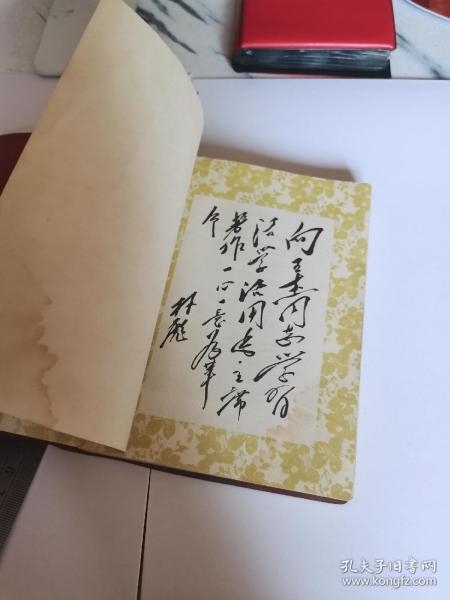 向王杰同志学习
活学活用毛主席
著作一心一意为革
命
林彪
孔夫子旧书网
www.kongfz.com